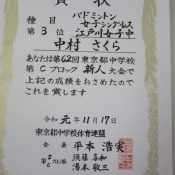 賞状
種目 バドミントン
女子シングルス
第3位 江戸川女子中
中村 さくら
あなたは第62回東京都中学校
第Cブロック 新人大会で
上記の成績をおさめたので
これを賞します
令和元年11月17日
東京都中学校体育連盟
会長 平本 浩実
第5 須藤 喜和
第6 清水 敬三